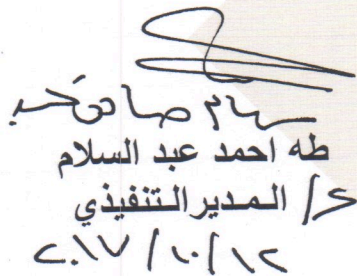 سهام صادق
طه احمد عبد السلام
د/ المدير التنفيذي
٢٠١٧/١٠/١٢